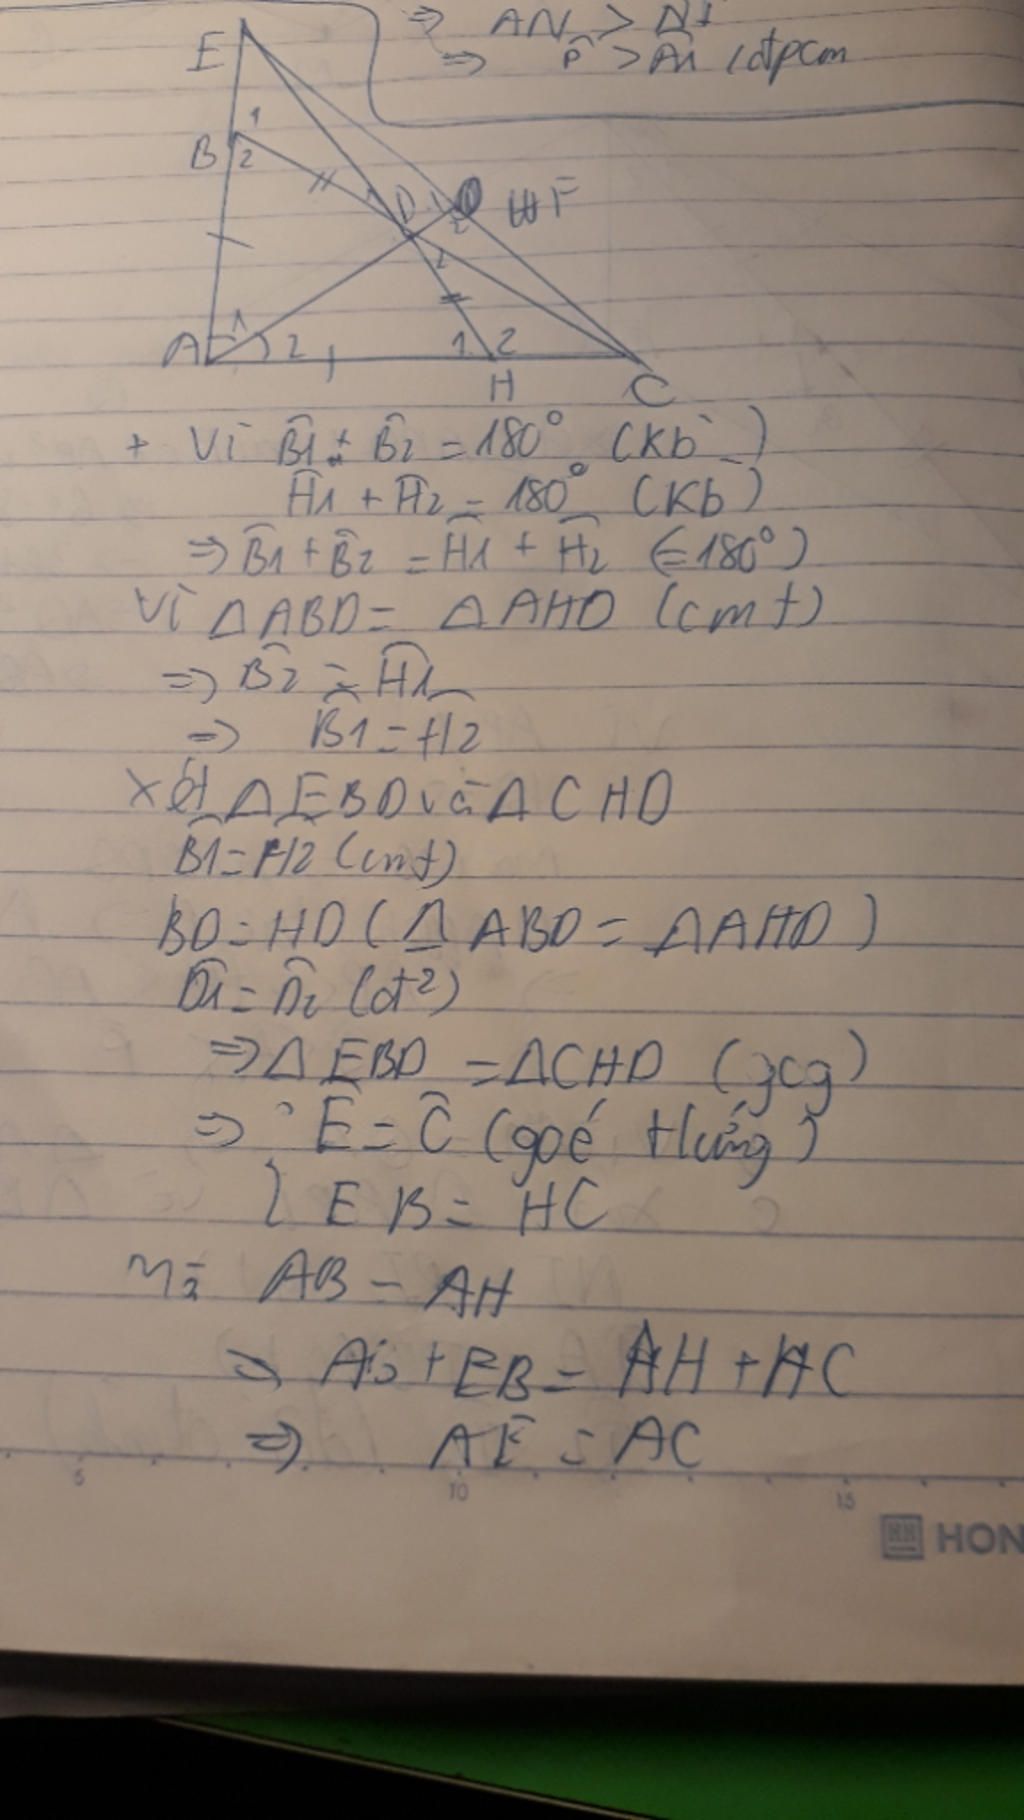 ⇒ AN > NI
⇒ P̂ > Â1 (đpcm
E
1
B 2
1 D 1 F
2
2
A 1 2 1 2
H C
+ Vì B̂1 + B̂2 = 180° (Kb)
Ĥ1 + Ĥ2 = 180° (Kb)
⇒ B̂1 + B̂2 = Ĥ1 + Ĥ2 (=180°)
Vì ΔABD = ΔAHD (cmt)
⇒ B̂2 = Ĥ1
⇒ B̂1 = Ĥ2
Xét ΔEBD và ΔCHD
B̂1 = Ĥ2 (cmt)
BD = HD (ΔABD = ΔAHD)
D̂1 = D̂2 (đ²)
⇒ ΔEBD = ΔCHD (gcg)
⇒ Ê = Ĉ (goé tứng)
EB = HC
Mà AB = AH
⇒ AB + EB = AH + HC
⇒ AE = AC
5 10 15
HON